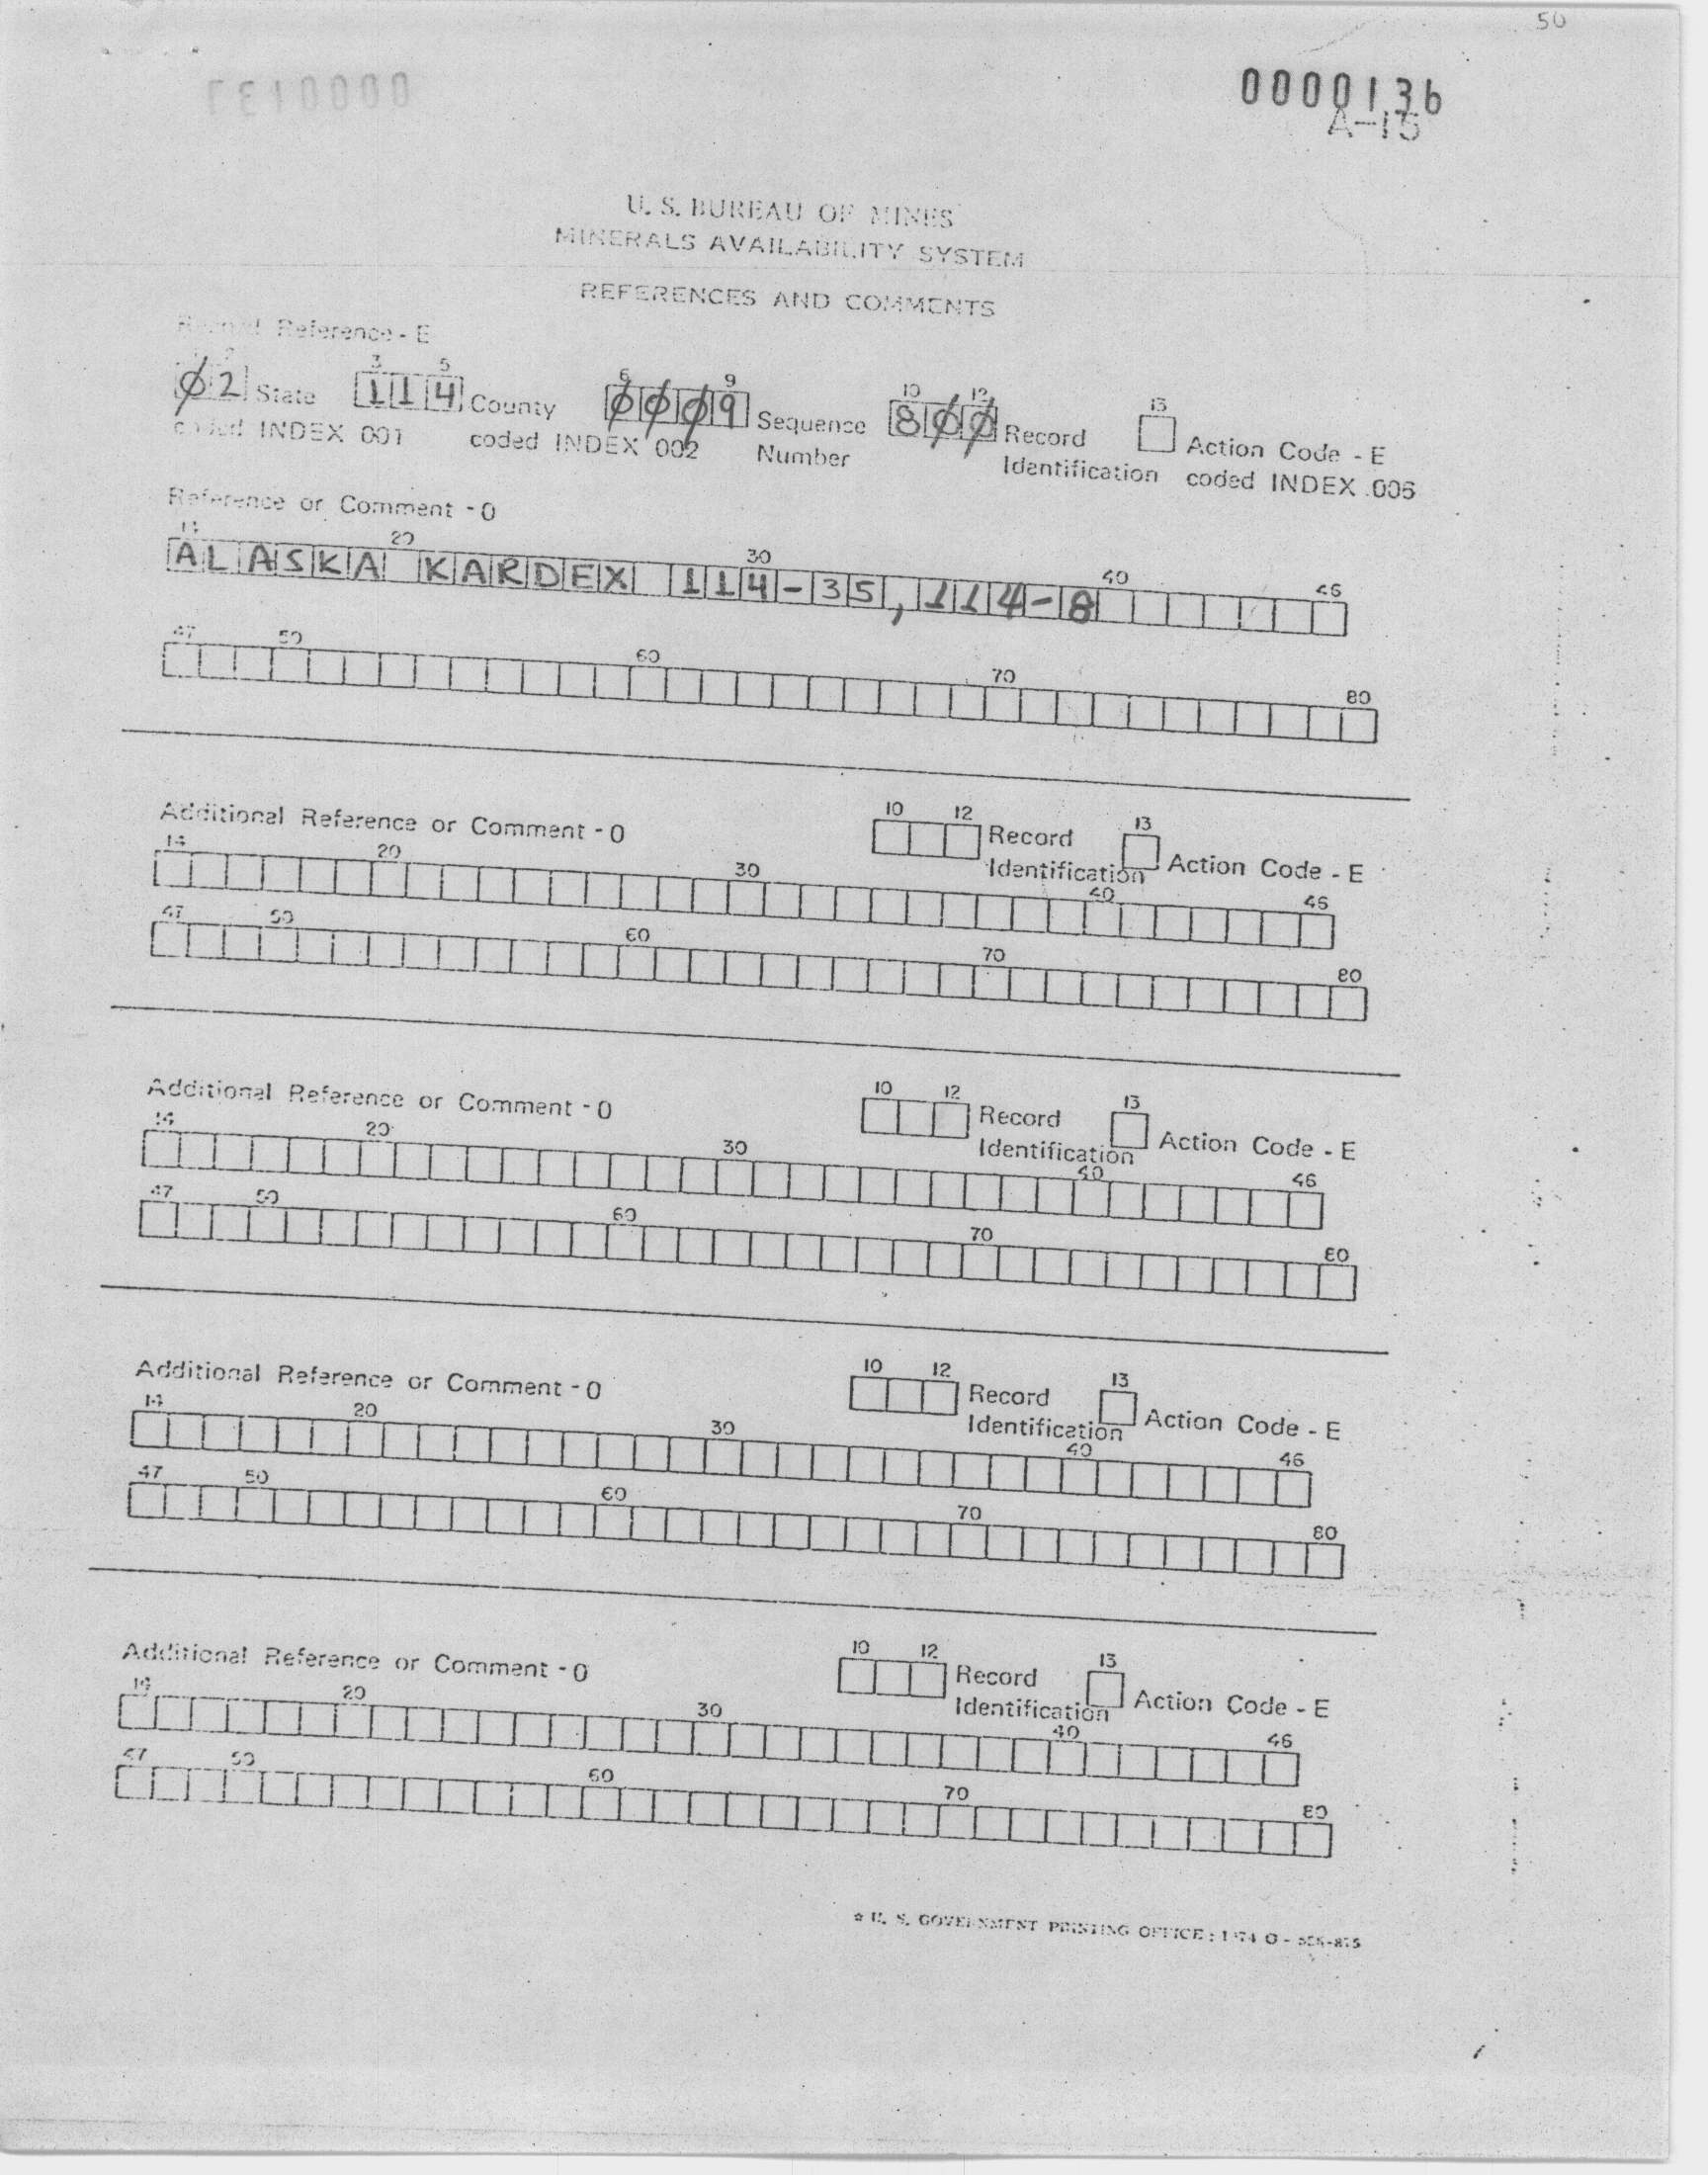 50
0000136
A-15
U. S. BUREAU OF MINES
MINERALS AVAILABILITY SYSTEM
REFERENCES AND COMMENTS
Reference - E
3 5 6 9 10 12 13
02 State 114 County 0009 Sequence Number 800 Record Identification Action Code - E
coded INDEX 001 coded INDEX 002 coded INDEX 006
Reference or Comment - O
14 20 30 40 46
ALASKA KARDEX 114-35, 114-8
47 50 60 70 80
Additional Reference or Comment - O 10 12 Record Identification 13 Action Code - E
14 20 30 40 46
47 50 60 70 80
Additional Reference or Comment - O 10 12 Record Identification 13 Action Code - E
14 20 30 40 46
47 50 60 70 80
Additional Reference or Comment - O 10 12 Record Identification 13 Action Code - E
14 20 30 40 46
47 50 60 70 80
Additional Reference or Comment - O 10 12 Record Identification 13 Action Code - E
14 20 30 40 46
47 50 60 70 80
☆ U. S. GOVERNMENT PRINTING OFFICE : 1974 O -